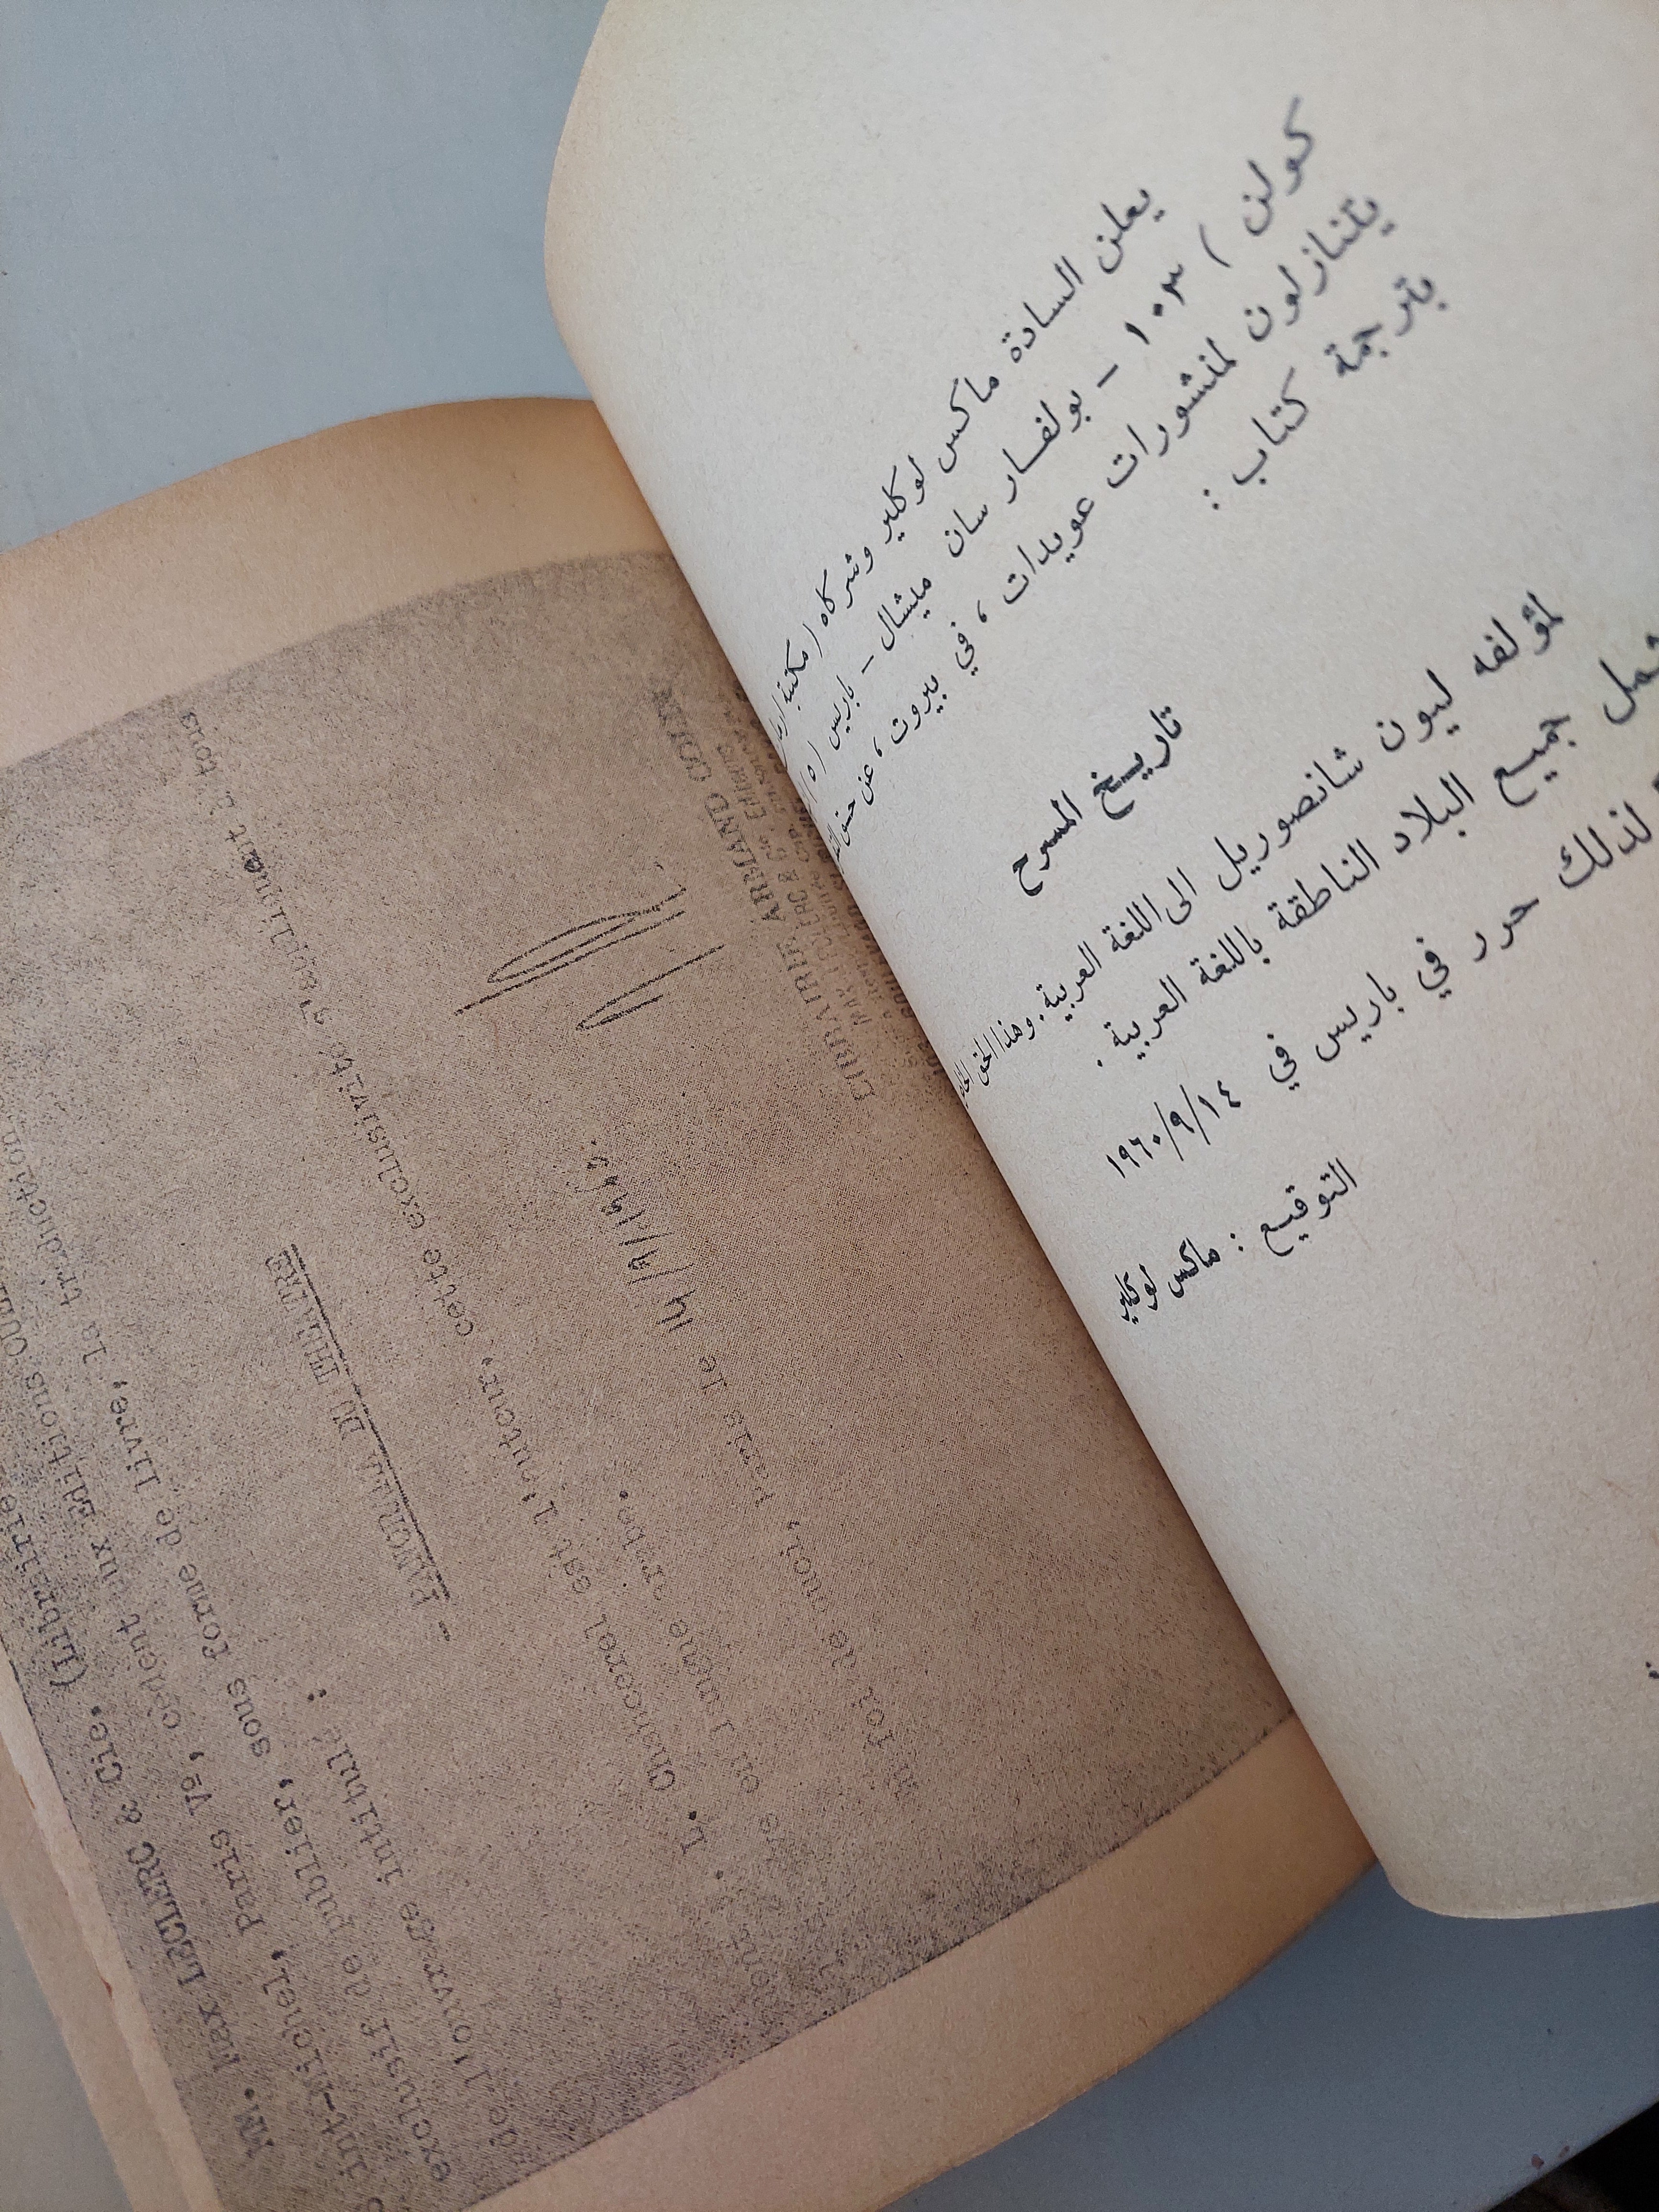 يعلن السادة ماكس لوكلير وشركاه (مكتبة
كولن ) ١٠٣ – بولفار سان ميشال – باريس (٥)
يتنازلون لمنشورات عويدات ، في بيروت ، عن حق
بترجمة كتاب :
تاريخ المسرح
لمؤلفه ليون شانصوريل الى اللغة العربية . وهذا الحق
يشمل جميع البلاد الناطقة باللغة العربية .
لذلك حرر في باريس في ١٤/٩/١٩٦٠
التوقيع : ماكس لوكلير
MM. Max LECLERC & Cie. (Librairie
int-Michel, Paris V°, cèdent aux Editions OUEI
exclusif de publier, sous forme de livre, la traduction
de l'ouvrage intitulé :
- PANORAMA DU THEATRE
L. Chancerel est l'auteur, cette exclusivité s'appliquant à tous
ayant en langue arabe.
foi de quoi, Paris le 14/9/1960
LIBRAIRIE ARMAND COLIN
MAX LECLERC & Cie, Editeurs